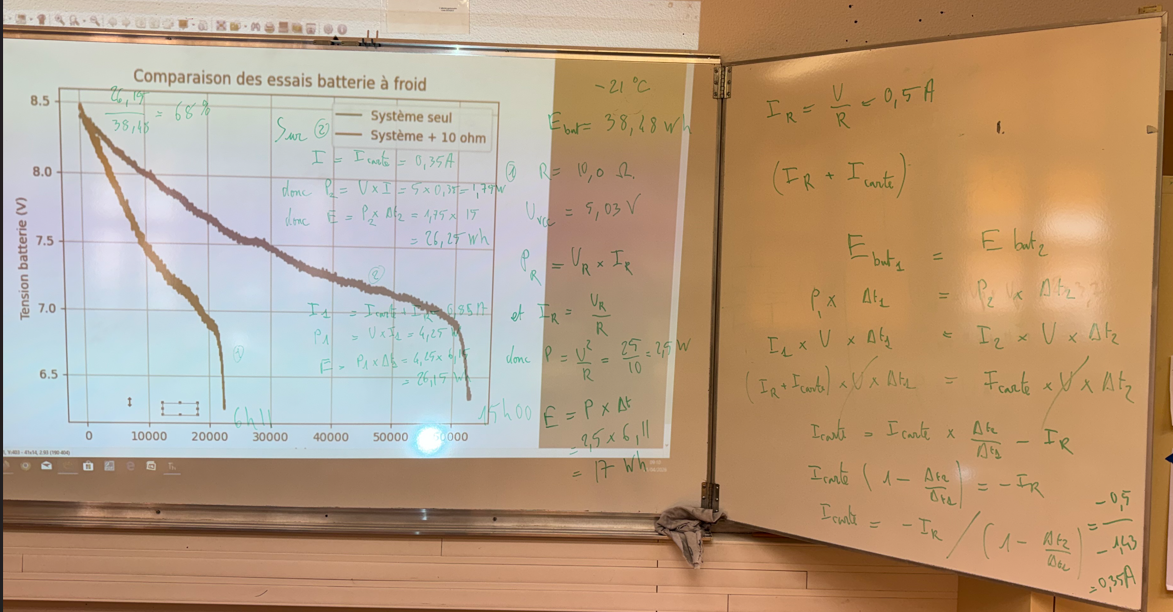 Comparaison des essais batterie à froid
Système seul
Système + 10 ohm
Tension batterie (V)
8.5
8.0
7.5
7.0
6.5
0
10000
20000
30000
40000
50000
60000
26,15 / 38,48 = 68 %
Sur ②
I = Icarte = 0,35A
donc P₂ = V x I = 5 x 0,35 = 1,75W
donc E = P₂ x Δt₂ = 1,75 x 15
= 26,25 Wh
②
I₁ = Icarte + IR = 0,85A
P₁ = V x I₁ = 4,25W
E = P₁ x Δt₁ = 4,25 x 6,15
= 26,15 Wh
①
6h11
15h00
-21 °C
Ebat = 38,48 Wh
① R = 10,0 Ω
Uvcc = 5,03 V
PR = UR x IR
et IR = UR / R
donc P = U² / R = 25 / 10 = 2,5 W
E = P x Δt
= 2,5 x 6,11
= 17 Wh
IR = V / R = 0,5 A
(IR + Icarte)
Ebat₁ = Ebat₂
P₁ x Δt₁ = P₂ x Δt₂
I₁ x V x Δt₁ = I₂ x V x Δt₂
(IR + Icarte) x V x Δt₁ = Icarte x V x Δt₂
Icarte = Icarte x Δt₂ / Δt₁ - IR
Icarte (1 - Δt₂ / Δt₁) = - IR
Icarte = - IR / (1 - Δt₂ / Δt₁) = -0,5 / -1,43
= 0,35A